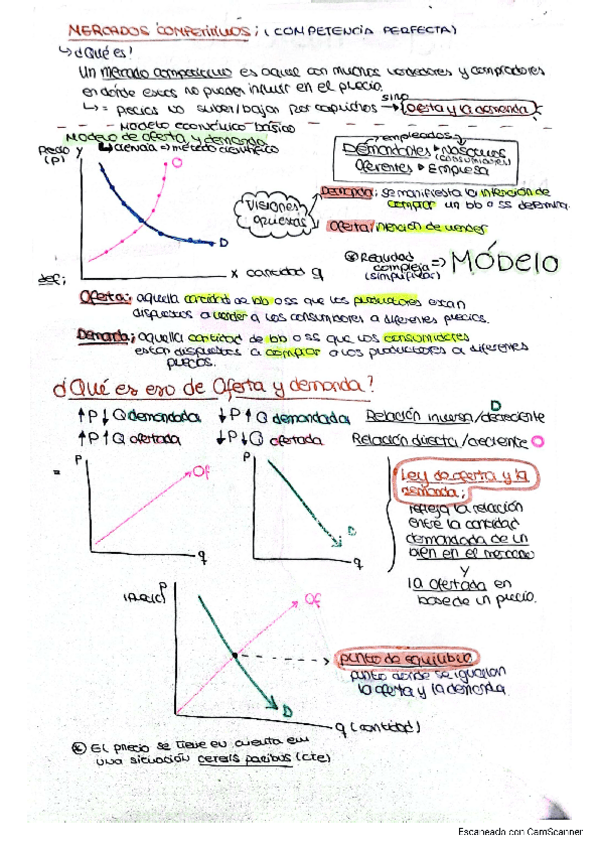 MERCADOS COMPETITIVOS; (COMPETENCIA PERFECTA)
↳ ¿Qué es?
Un mercado competitivo es aquel con muchos vendedores y compradores
en donde estos no pueden influir en el precio.
↳ = precios no suben/bajan por caprichos → sino oferta y la demanda
Modelo económico básico
Modelo de oferta y demanda
↳ ciencia → método científico
Precio y
(P)
O
D
x cantidad q
empleados
Demandantes → Nosotros
(consumidores)
Oferentes → Empresa
Visiones opuestas
Demanda; se manifiesta la intención de
comprar un bb o ss determina.
Oferta; intención de vender
* Realidad
compleja =>
(simplificar)
MÓDELO
def;
Oferta; aquella cantidad de bb o ss que los productores están
dispuestos a vender a los consumidores a diferentes precios.
Demanda; aquella cantidad de bb o ss que los consumidores
están dispuestos a comprar a los productores a diferentes
precios.
¿Qué es eso de Oferta y demanda?
D
↑P ↓Q demandada ↓P ↑Q demandada Relación inversa/decreciente
↑P ↑Q ofertada ↓P ↓Q ofertada Relación directa/creciente O
=
P
Of
q
P
D
q
Ley de oferta y la
demanda;
refleja la relación
entre la cantidad
demandada de un
bien en el mercado
y
la ofertada en
base de un precio.
P
Of
D
q (cantidad)
punto de equilibrio
punto donde se igualan
la oferta y la demanda
* El precio se tiene en cuenta en
una situación ceteris paribus (cte)
Escaneado con CamScanner